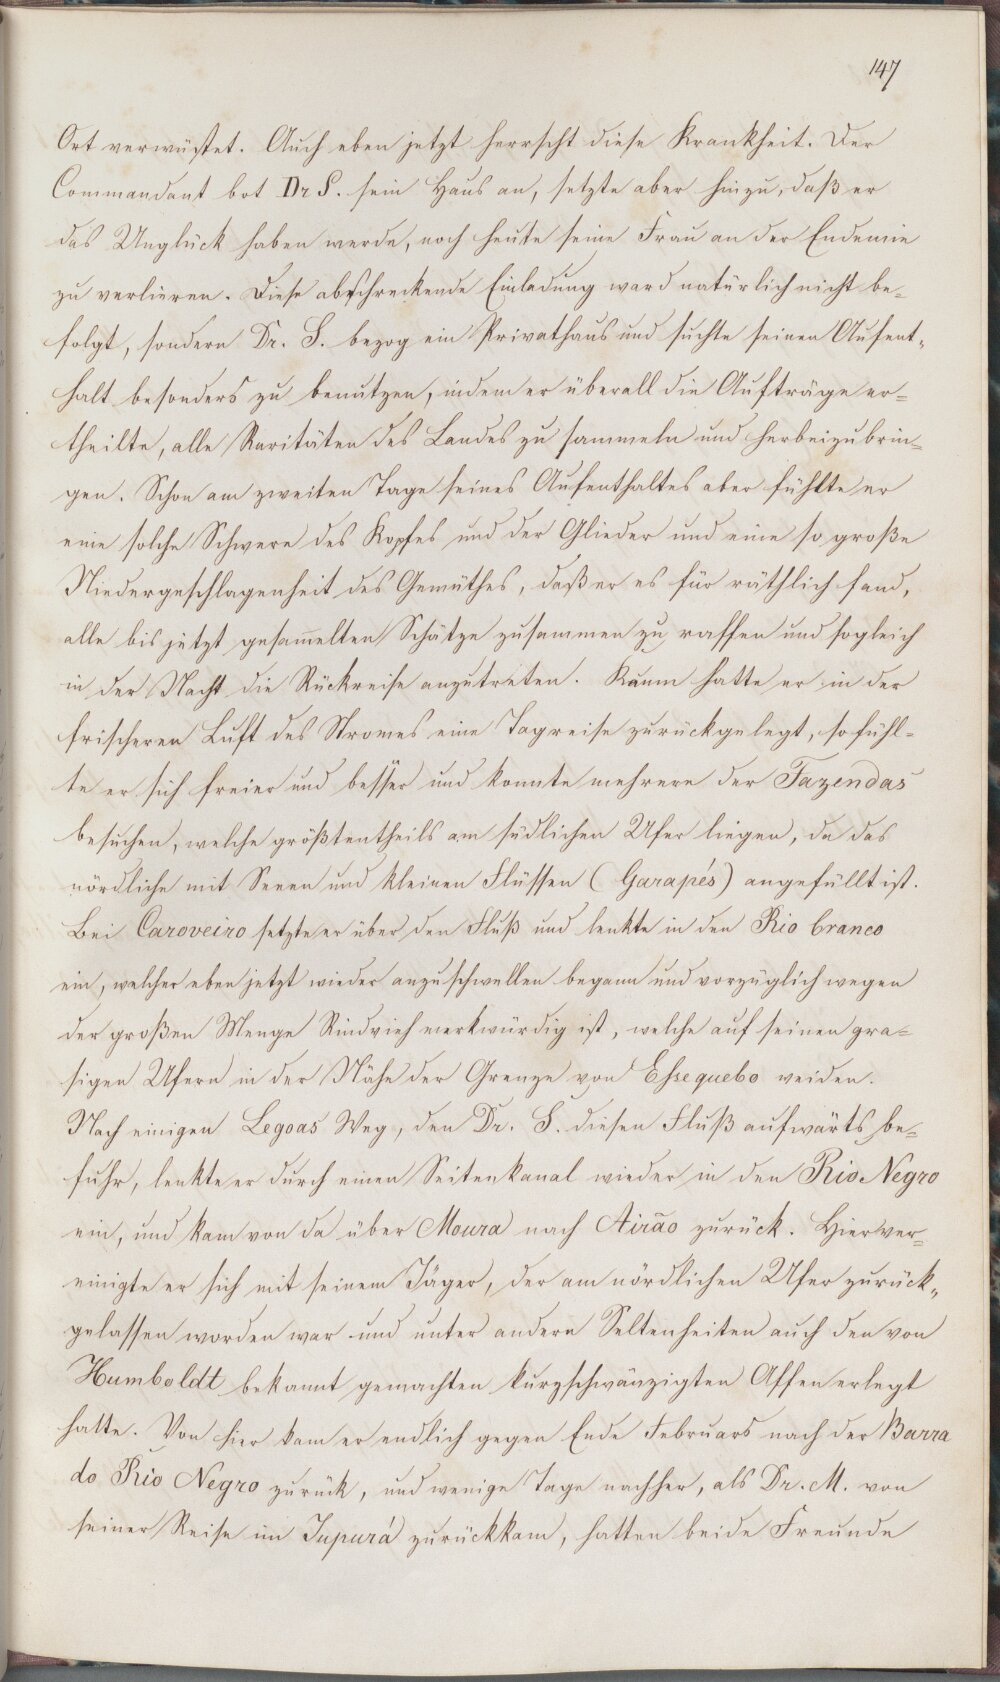 147
Ort verwüstet. Auch eben jetzt herrscht diese Krankheit. Der
Commandant bot Dr S. sein Haus an, setzte aber hinzu, daß er
das Unglück haben werde, noch heute seine Frau an der Endemie
zu verlieren. Diese abschreckende Einladung ward natürlich nicht be-
folgt, sondern Dr. S. bezog ein Privathaus und suchte seinen Aufent-
halt besonders zu benutzen, indem er überall die Aufträge er-
theilte, alle Raritäten des Landes zu sammeln und herbeizubrin-
gen. Schon am zweiten Tage seines Aufenthaltes aber fühlte er
eine solche Schwere des Kopfes und der Glieder und eine so große
Niedergeschlagenheit des Gemüthes, daß er es für räthlich fand,
alle bis jetzt gesam̄elten Schätze zusammen zu raffen und sogleich
in der Nacht die Rückreise anzutreten. Kaum hatte er in der
frischeren Luft des Stromes eine Tagreise zurückgelegt, so fühl-
te er sich freier und besser und konnte mehrere der Fazendas
besuchen, welche größtentheils am südlichen Ufer liegen, da das
nördliche mit Seeen und kleinen Flüssen (Garapés) angefüllt ist.
Bei Caroveiro setzte er über den Fluß und lenkte in den Rio branco
ein, welcher eben jetzt wieder anzuschwellen begann und vorzüglich wegen
der großen Menge Rindvieh merkwürdig ist, welche auf seinen gra-
sigen Ufern in der Nähe der Grenze von Essequebo weiden.
Nach einigen Legoas Weg, den Dr. S. diesen Fluß aufwärts be-
fuhr, lenkte er durch einen Seitenkanal wieder in den Rio Negro
ein, und kam von da über Moura nach Airão zurück. Hier ver-
einigte er sich mit seinem Jäger, der am nördlichen Ufer zurück-
gelassen worden war und unter andern Seltenheiten auch den von
Humboldt bekannt gemachten kurzschwänzigten Affen erlegt
hatte. Von hier kam er endlich gegen Ende Februars nach der Barra
do Rio Negro zurück, und wenige Tage nachher, als Dr. M. von
seiner Reise im Jupurá zurückkam, hatten beide Freunde